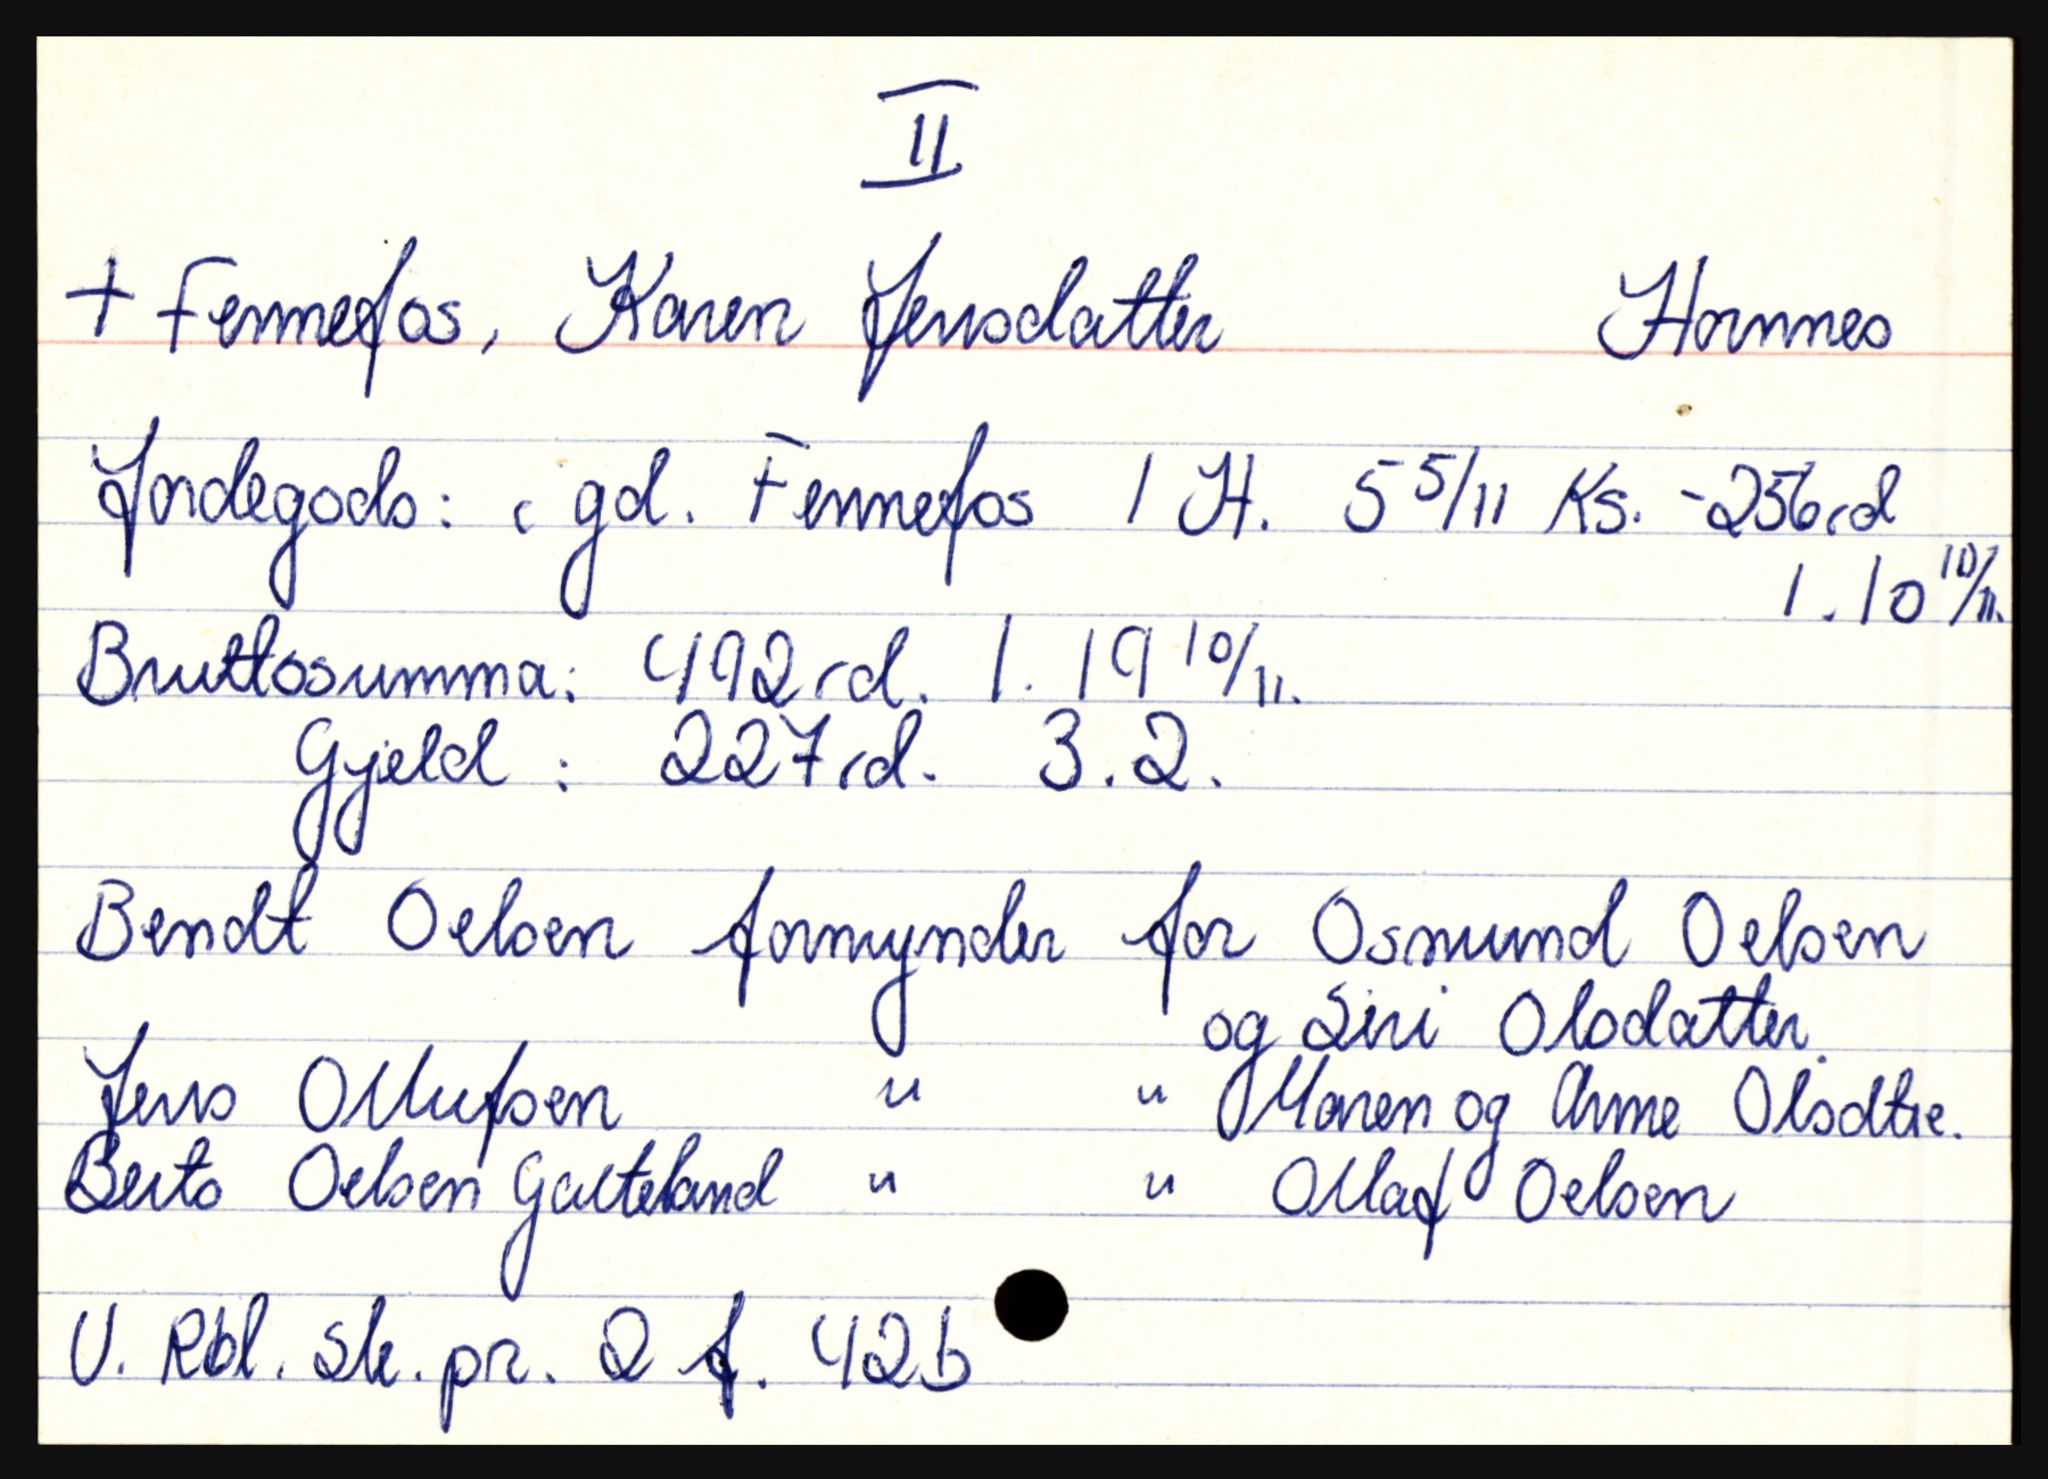 II
+ Fennefos, Karen Jensdatter Hornnes
Jordegods: i gd. Fennefos 1 H. 5 5/11 Ks. - 256 rd
1. 10 10/11.
Bruttosumma: 492 rd. 1. 19 10/11.
Gjeld : 227 rd. 3. 2.
Bendt Oelsen formynder for Osmund Oelsen
og Siri Olsdatter.
Jens Ollufsen " " Maren og Anne Olsdtre.
Bents Oelsen Galteland " " Ollaf Oelsen
V. Rbl. Sk. pr. 2 f. 42b